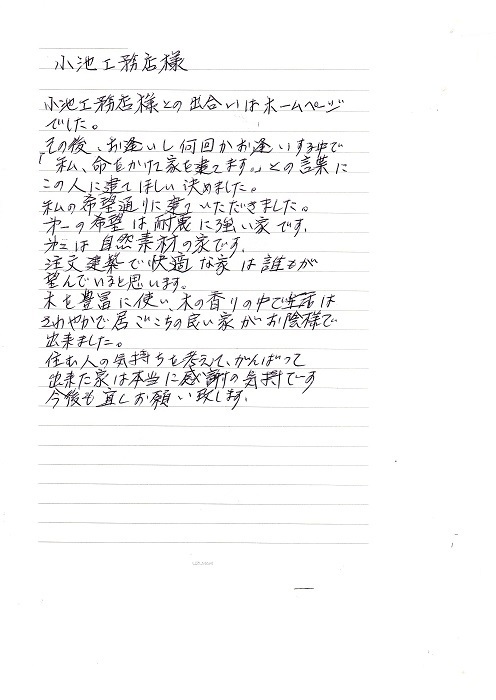 小池工務店様
小池工務店様との出合いはホームページ
でした。
その後、お逢いし何回かお逢いする中で
「私、命をかけて家を建てます。」との言葉に
この人に建てほしい決めました。
私の希望通りに建ていただきました。
第一の希望は耐震に強い家です。
第二は自然素材の家です。
注文建築で快適な家は誰もが
望んでいると思います。
木を豊富に使い、木の香りの中で生活は
さわやかで居ごこちの良い家がお陰様で
出来ました。
住む人の気持ちを考えて、がんばって
出来た家は本当に感謝の気持で〜す
今後も宜しお願い致します。